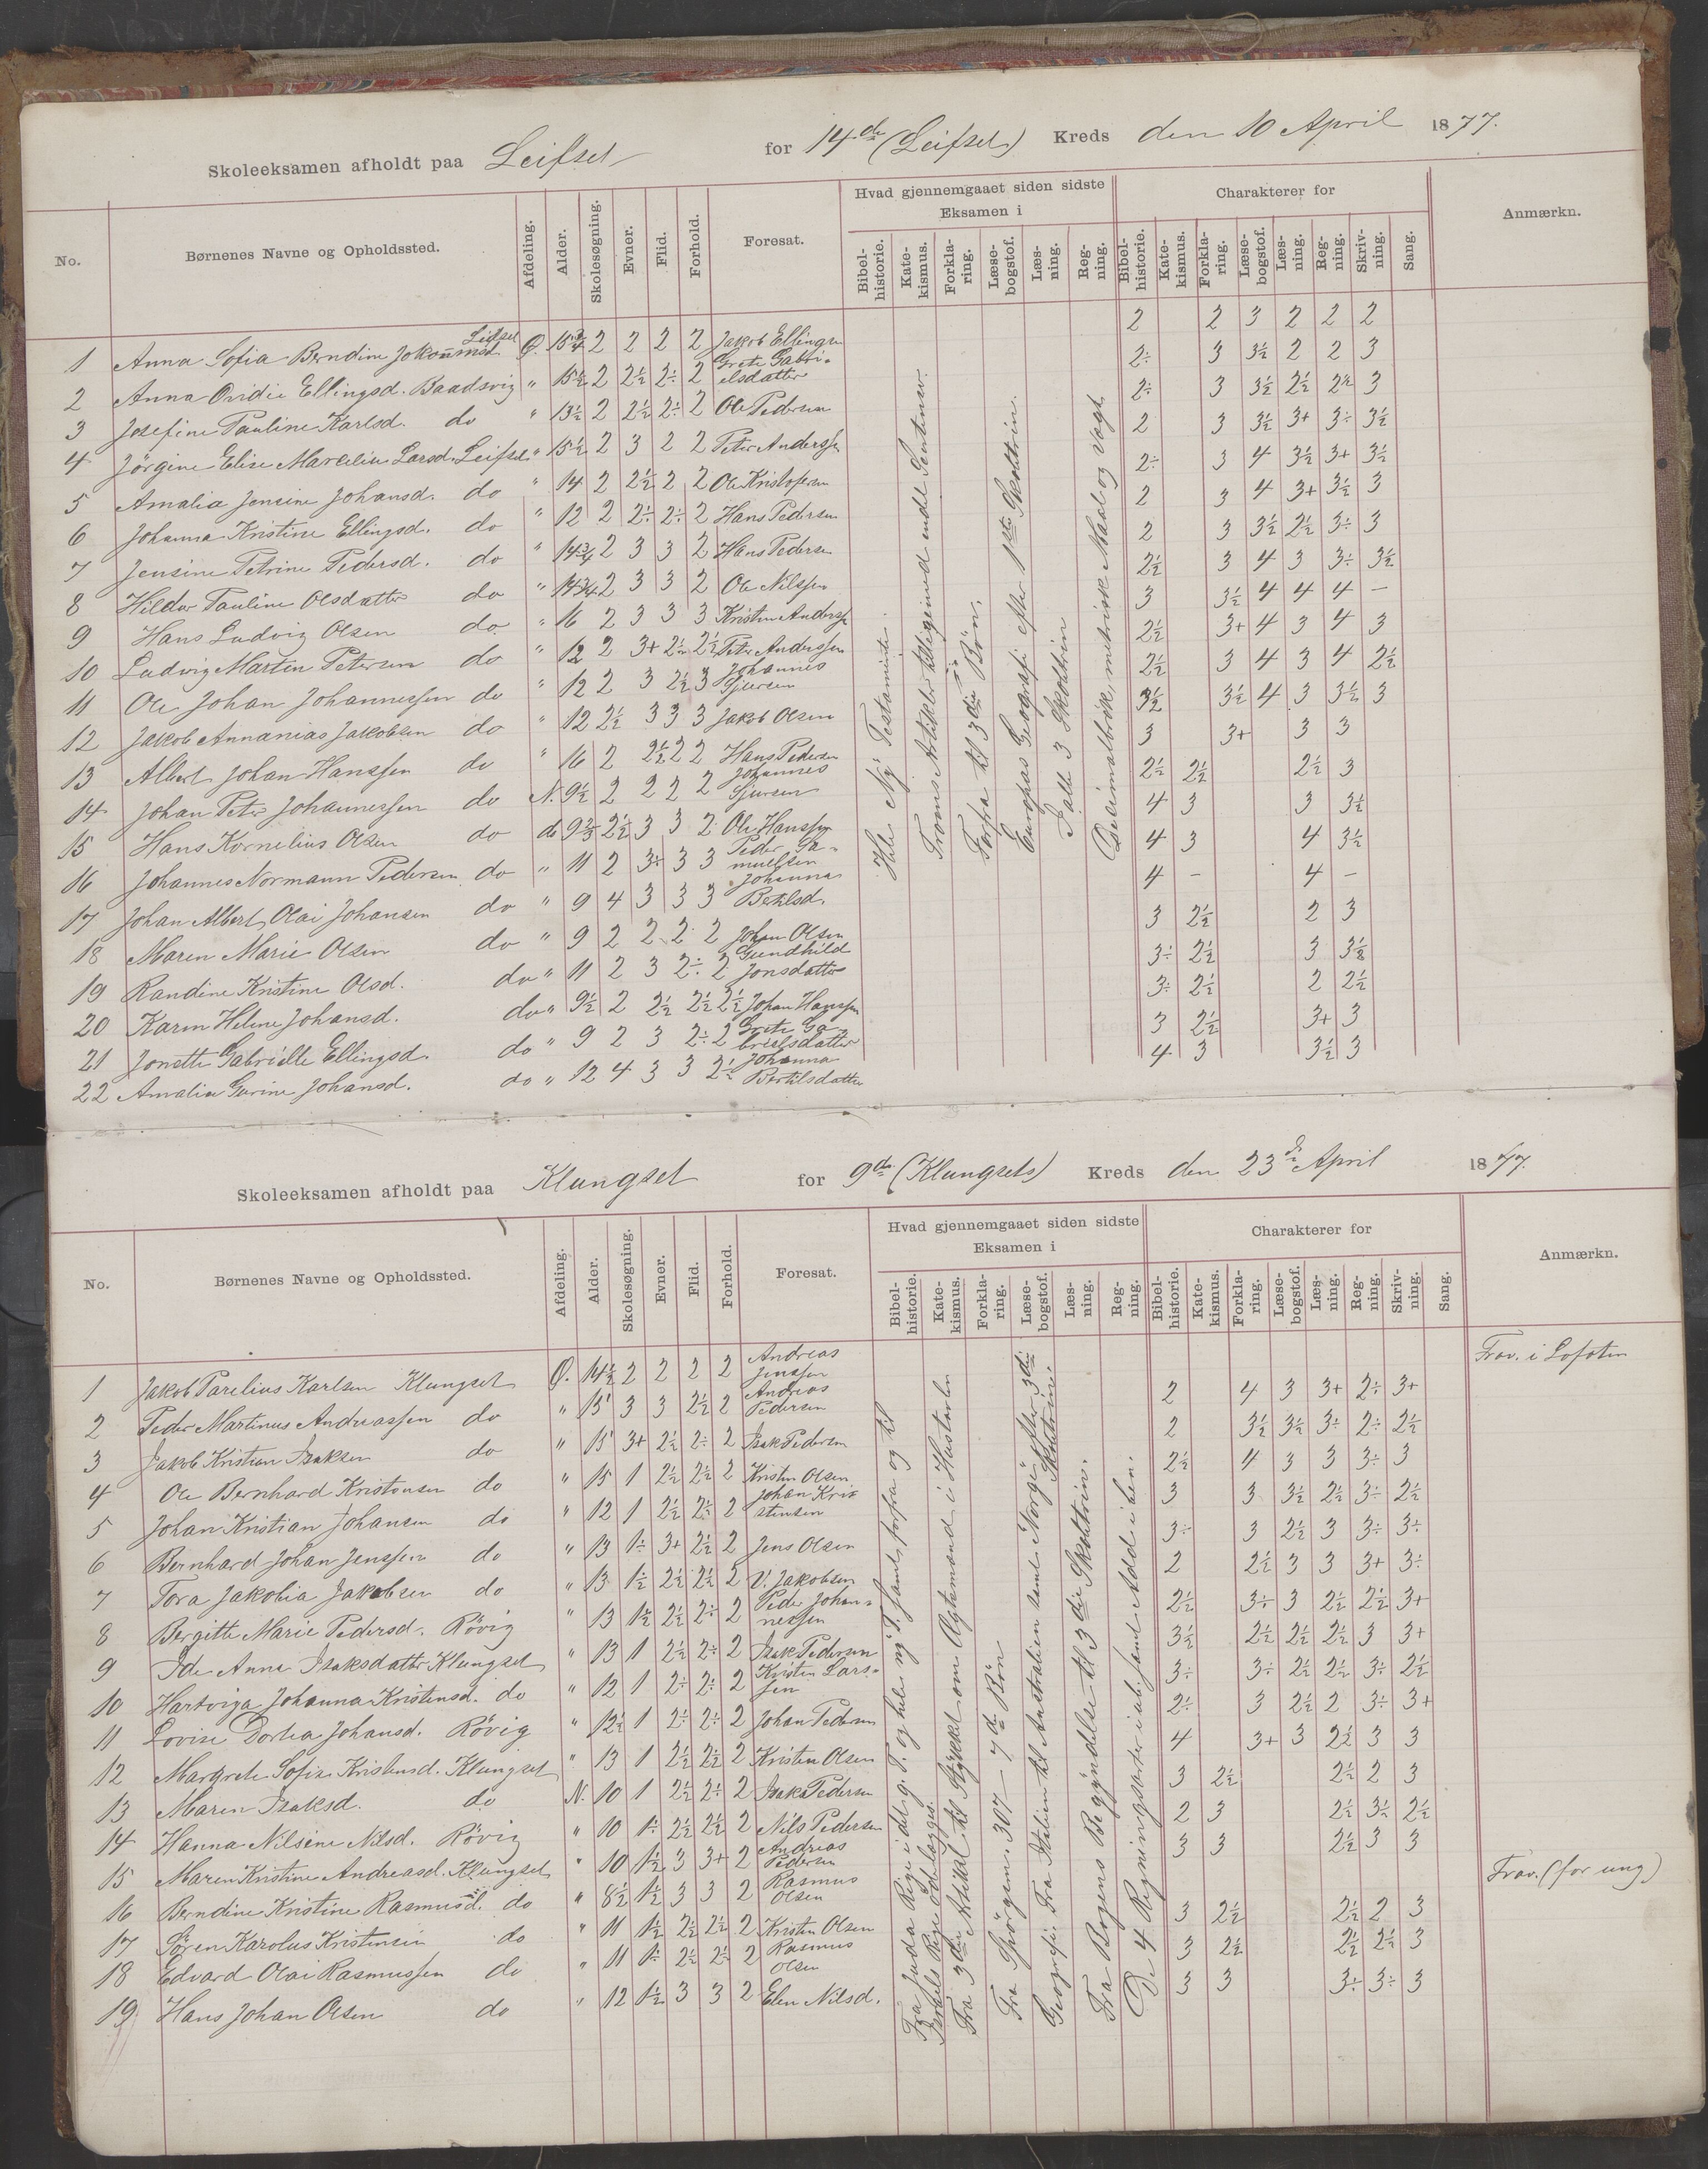 Skoleeksamen afholdt paa Leifset for 14de (Leifsets) Kreds den 10 April 1877.
No. Børnenes Navne og Opholdssted. Afdeling. Alder. Skolesøgning. Evner. Flid. Forhold. Foresat. Hvad gjennemgaaet siden sidste Eksamen i Charakterer for Anmærkn.
Bibelhistorie. Katekismus. Forklaring. Læsebogstof. Læsning. Regning. Bibelhistorie. Katekismus. Forklaring. Læsebogstof. Læsning. Regning. Skrivning. Sang.
1 Anna Sofia Berndine Leifset Ø. 15¾ 2 2 2 2 Jakob Ellingsen 2 2 3 2 2 2
2 Anna Ovidie Ellingsd. Baadsvig " 15½ 2 2½ 2÷ 2 Grete Gabrielsdatter 2÷ 3 3½ 2 2 3
3 Josefine Pauline Karlsd. do " 13½ 2 2½ 2÷ 2 Ole Pedersen 2÷ 3 3½ 2½ 3
4 Jörgine Elise Larsd. Leifset " 15½ 2 3 2 2 Peter Anderssen 2 3 3½ 3+ 3÷ 3½
5 Amalia Jensine Johansd. do " 14 2 2½ 2 2 Ole Kristofersen 2÷ 3 4 3½ 3+ 3½
6 Johanna Kristine Ellingsd. do " 12 2 2÷ 2÷ 2 Hans Pedersen 2 3 4 3+ 3½ 3
7 Jensine Petrine Pedersd. do " 14¾ 2 3 3 2 Hans Pedersen 2 3 3½ 2½ 3÷ 3
8 Hilda Pauline Olsdatter do " 14¾ 2 3 3 2 Ole Nilssen 2½ 3 4 3 3÷ 3½
9 Hans Ludvig Olsen do " 16 2 3 3 3 Kristen Anderssen 3 3½ 4 4 4 –
10 Ludvig Martin Petersen do " 12 2 3+ 2½ 2½ Peter Anderssen 2½ 3+ 4 3 4 3
11 Ole Johan Johannessen do " 12 2 3 2½ 3 Johannes Sjursen 2½ 3 4 3 4 2½
12 Jakob Annanias Jakobsen do " 12 2½ 3 3 3 Jakob Olsen 3½ 3½ 4 3 3½ 3
13 Albert Johan Hanssen do " 16 2 2½ 2 2 Hans Pedersen 3 3+ 3 3
14 Johan Peter Johannessen do N. 9½ 2 2 2 2 Johannes Sjursen 2½ 2½ 2½ 3
15 Hans Kornelius Olsen do do 2½ 3 3 2 Ole Hanssen 4 3 3 3½
16 Johannes Normann Pedersen do " 11 2 3÷ 3 3 Peder Samuelsen 4 3 4 3½
17 Johan Albert Olai Johansen do " 9 4 3 3 3 Johanna Betilsd. 4 – 4 –
18 Maren Marie Olsen do " 9 2 2 2 2 Johan Olsen 3 2½ 2 3
19 Randine Kristine Olsd. do " 11 2 3 2÷ 2 Gundhild Jonsdatter 3÷ 2½ 3
20 Karen Helene Johansd. do " 9½ 2 2½ 2½ 2½ Johan Hanssen 3÷ 2½ 2 2½
21 Jonette Gabrielle Ellingsd. do " 9 2 3 2÷ 2 Grete Gabrielsdatter 3 2½ 3+ 3
22 Amalia Gurine Johansd. do " 12 4 3 3 2½ Johanna Bertilsdatter 4 3 3½ 3
Hele Ny Testamente.
Troens Artikler tilligemed endel Sentenser.
Forfra til 3die Bøn.
Europas Geografi efter 1ste Skoltrin.
I alle 3 Skoltrin
Decimalbrøk, metriske Maal og Vægt.
Skoleeksamen afholdt paa Klungset for 9de (Klungsets) Kreds den 23de April 1877.
No. Børnenes Navne og Opholdssted. Afdeling. Alder. Skolesøgning. Evner. Flid. Forhold. Foresat. Hvad gjennemgaaet siden sidste Eksamen i Charakterer for Anmærkn.
Bibelhistorie. Katekismus. Forklaring. Læsebogstof. Læsning. Regning. Bibelhistorie. Katekismus. Forklaring. Læsebogstof. Læsning. Regning. Skrivning. Sang.
1 Jakob Parelius Karlsen Klungset Ø. 14½ 2 2 2 2 Andreas Jenssen Frav. i Lofoten
2 Peder Martinus Andreassen do " 15 3 3 2½ 2 Andreas Pedersen 2 4 3 3+ 2÷ 3+
3 Jakob Kristian Isaksen do " 15 3+ 2½ 2÷ 2 Isak Pedersen 2 3½ 3½ 3÷ 2÷ 2½
4 Ole Bernhard Kristensen do " 15 1 2½ 2½ 2 Kristen Olsen 2½ 4 3 3 3÷ 3
5 Johan Kristian Johansen do " 12 1 2½ 2÷ 2 Johan Kristensen 3 3 3½ 2½ 3÷ 2½
6 Bernhard Johan Jenssen do " 13 1÷ 3+ 2½ 2 Jens Olsen 3÷ 3 2½ 3 3÷ 3÷
7 Tora Jakobia Jakobsen do " 13 1½ 2½ 2½ 2 V. Jakobsen 2 2½ 3 3 3+ 3÷
8 Bergitte Marie Pedersd. Rövig " 13 1½ 2½ 2÷ 2 Peder Johannessen 2½ 3÷ 3 2½ 2½ 3+
9 Ide Anna Isaksdatter Klungset " 13 1 2½ 2÷ 2 Isak Pedersen 3½ 2½ 2½ 2½ 3 3+
10 Hartviga Johanna Kristensd. do " 12 1 2÷ 2÷ 2 Kristen Larssen 3÷ 3÷ 2½ 2½ 3÷ 2½
11 Lovise Dortea Johansd. Rövig " 12½ 1 2÷ 2÷ 2 Johan Pedersen 2÷ 3 2½ 2 3÷ 3+
12 Margrete Sofie Kristensd. Klungset " 13 1 2½ 2½ 2 Kristen Olsen 4 3+ 3 2½ 3 3
13 Maren Isaksd. do N. 10 1 2½ 2÷ 2 Isak Pedersen 3 2½ 2½ 2 3
14 Hanna Nilsine Nilsd. Rövig " 10 1÷ 2½ 2½ 2 Nils Pedersen 2 3 2½ 3½ 2½
15 Maren Kristine Andreasd. Klungset " 10 1½ 3 3+ 2 Andreas Pedersen 3 3 2½ 3 3
16 Berndine Kristine Rasmusd. do " 8½ 1½ 3 3 2 Rasmus Olsen Frav. (for ung)
17 Sören Karolus Kristensen do " 11 1½ 2½ 2½ 2 Kristen Olsen 3 2½ 2½ 2 3
18 Edvard Olai Rasmussen do " 11 1÷ 2½ 2½ 2 Rasmus Olsen 3 2½ 2½ 2½ 3
19 Hans Johan Olsen do " 12 1½ 3 3 2 Elen Nilsd. 3 3 3÷ 3÷ 3
Fra Juda Rige i det g. T. og hele ny T. samt forfra og til Israels Rige ødelægges.
Fra 3die Artikel til Stykket om Ægtemænd i Hustavlen
Fra Spörgsm. 307 – 7de Bön
Geografi: Fra Italien til Australien samt Norge efter 3die Skoltrin.
Fra Bogens Begyndelse til 3die Skoltrin.
De 4 Regningsarter i ub. samt Add. i ben.